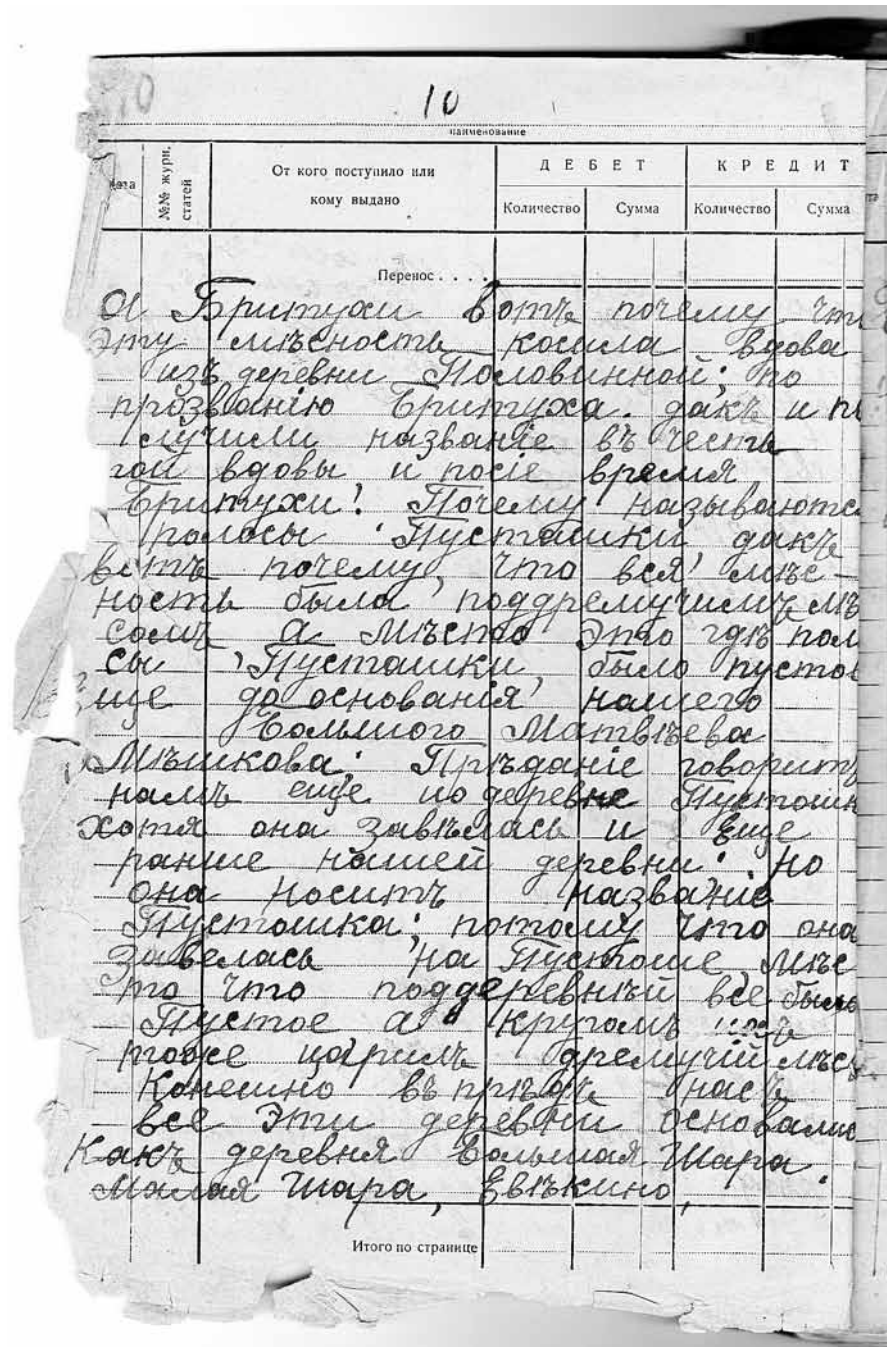 10
10
наименование
Дата
№№ журн. статей
От кого поступило или
кому выдано
ДЕБЕТ
КРЕДИТ
Количество
Сумма
Количество
Сумма
Перенос . . . .
а Бритухи вотъ почему что
эту мѣсность косила вдова
изъ деревни Половинной; по
прозванію Бритуха. дакъ и п
лучили названіе въ честь
той вдовы и посіе время
Бритухи! Почему называютс
полосы Пусташки дакъ
вотъ почему, что вся мѣс-
ность была поддремучимъ лѣ
сомъ а мѣсто это гдѣ пол
сы Пусташки, было пустое
еще до основанія нашего
Большого Матвѣева
Мѣшкова. Прѣданіе говоритъ
намъ еще и о деревне Пустошк
хотя она завѣлась и еще
раньше нашей деревни: но
она носитъ названіе
Пустошка; потому что она
завелась на Пустоше, мѣс
то что поддеревнѣй все было
Пустое а кругомъ
тоже царилъ дремучій лѣсъ
Конешно въ прѣдъ насъ
все эти деревни основалис
Какъ деревня Большая Шара
Малая Шара, Евѣкино,
Итого по странице